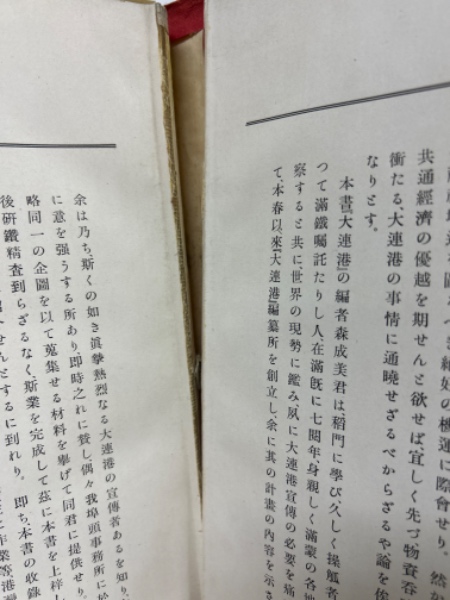 べき絶好の機運に際會せり。然
共通經濟の優越を期せんと欲せば、宜しく先づ物資呑
衝たる、大連港の事情に通曉せざるべからざるや論を俟
なりとす。
本書『大連港』の編者森成美君は、稻門に學び、久しく操觚者
つて滿鐵囑託たりし人、在滿旣に七閱年身親しく滿蒙の各地
察すると共に、世界の現勢に鑑み、夙に大連港宣傳の必要を痛
て、本春以來『大連港』編纂所を創立し、余に其の計畫の內容を示さ
余は乃ち、斯くの如き眞摯熱烈なる大連港の宣傳者あるを知り、
に意を强うする所あり、卽時之れに贊し、偶々我埠頭事務所に於
略同一の企圖を以て蒐集せる材料を擧げて同君に提供せり。
後硏鑽精査到らざるなく、斯業を完成して茲に本書を上梓し
せんとするに到れり。卽ち、本書の收錄